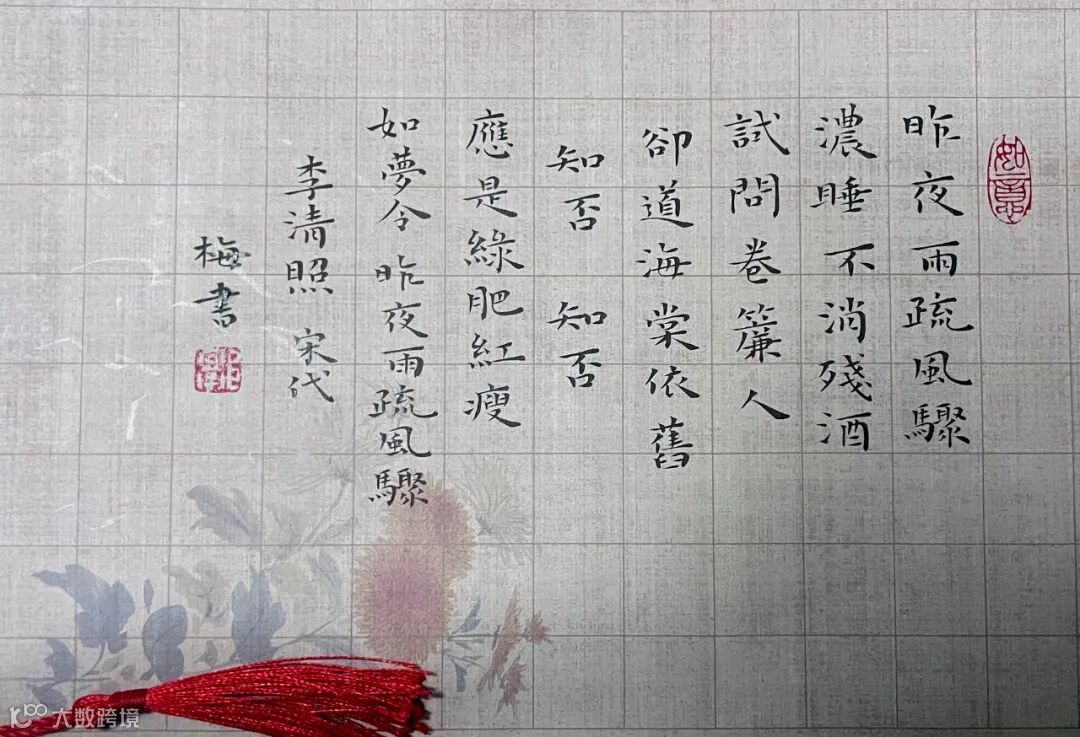 如意
昨夜雨疏風驟
濃睡不消殘酒
試問卷簾人
卻道海棠依舊
知否 知否
應是綠肥紅瘦
如夢令 昨夜雨疏風驟
李清照 宋代
梅書
大数跨境